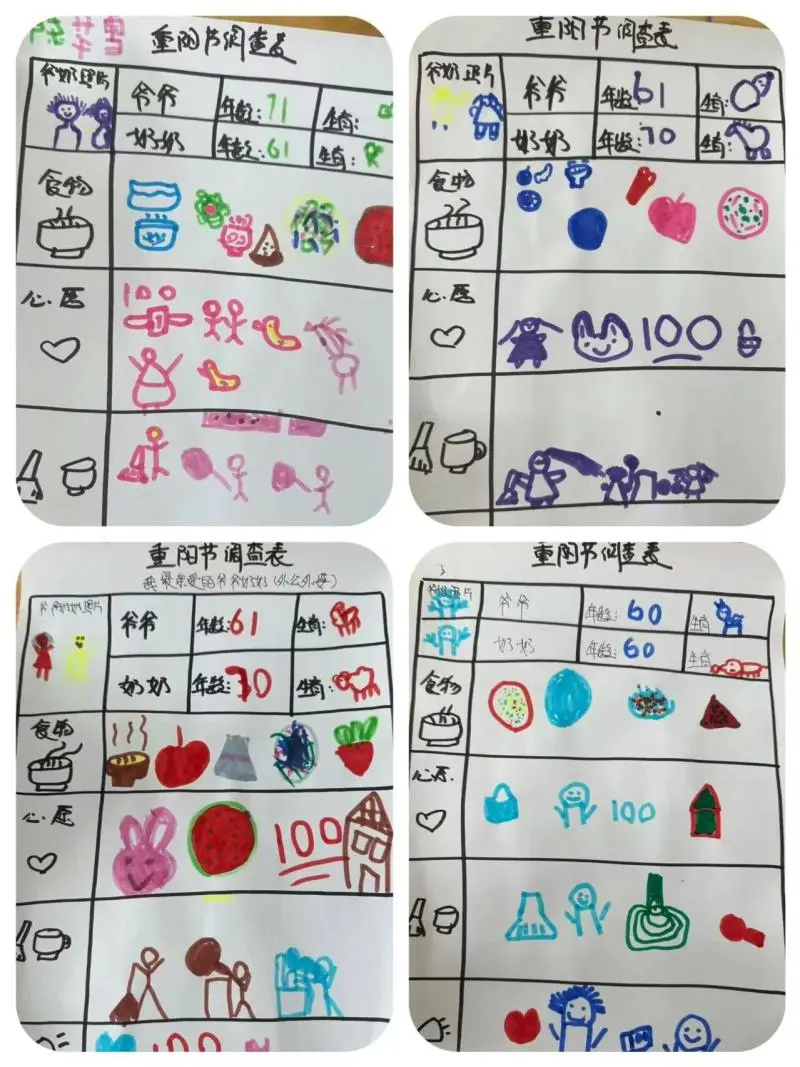 重阳节调查表
爷奶照片
爷爷 年龄:71 生肖:
奶奶 年龄:61 生肖:
食物
心愿
100
重阳节调查表
爷奶照片
爷爷 年龄:61 生肖:
奶奶 年龄:70 生肖:
食物
心愿
100
重阳节调查表
我最亲爱的爷爷奶奶(外公外婆)
爷爷奶奶照片
爷爷 年龄:61 生肖:
奶奶 年龄:70 生肖:
食物
心愿
100
100
重阳节调查表
爷奶照片
爷爷 年龄:60 生肖
奶奶 年龄:60 生肖
食物
心愿.
100